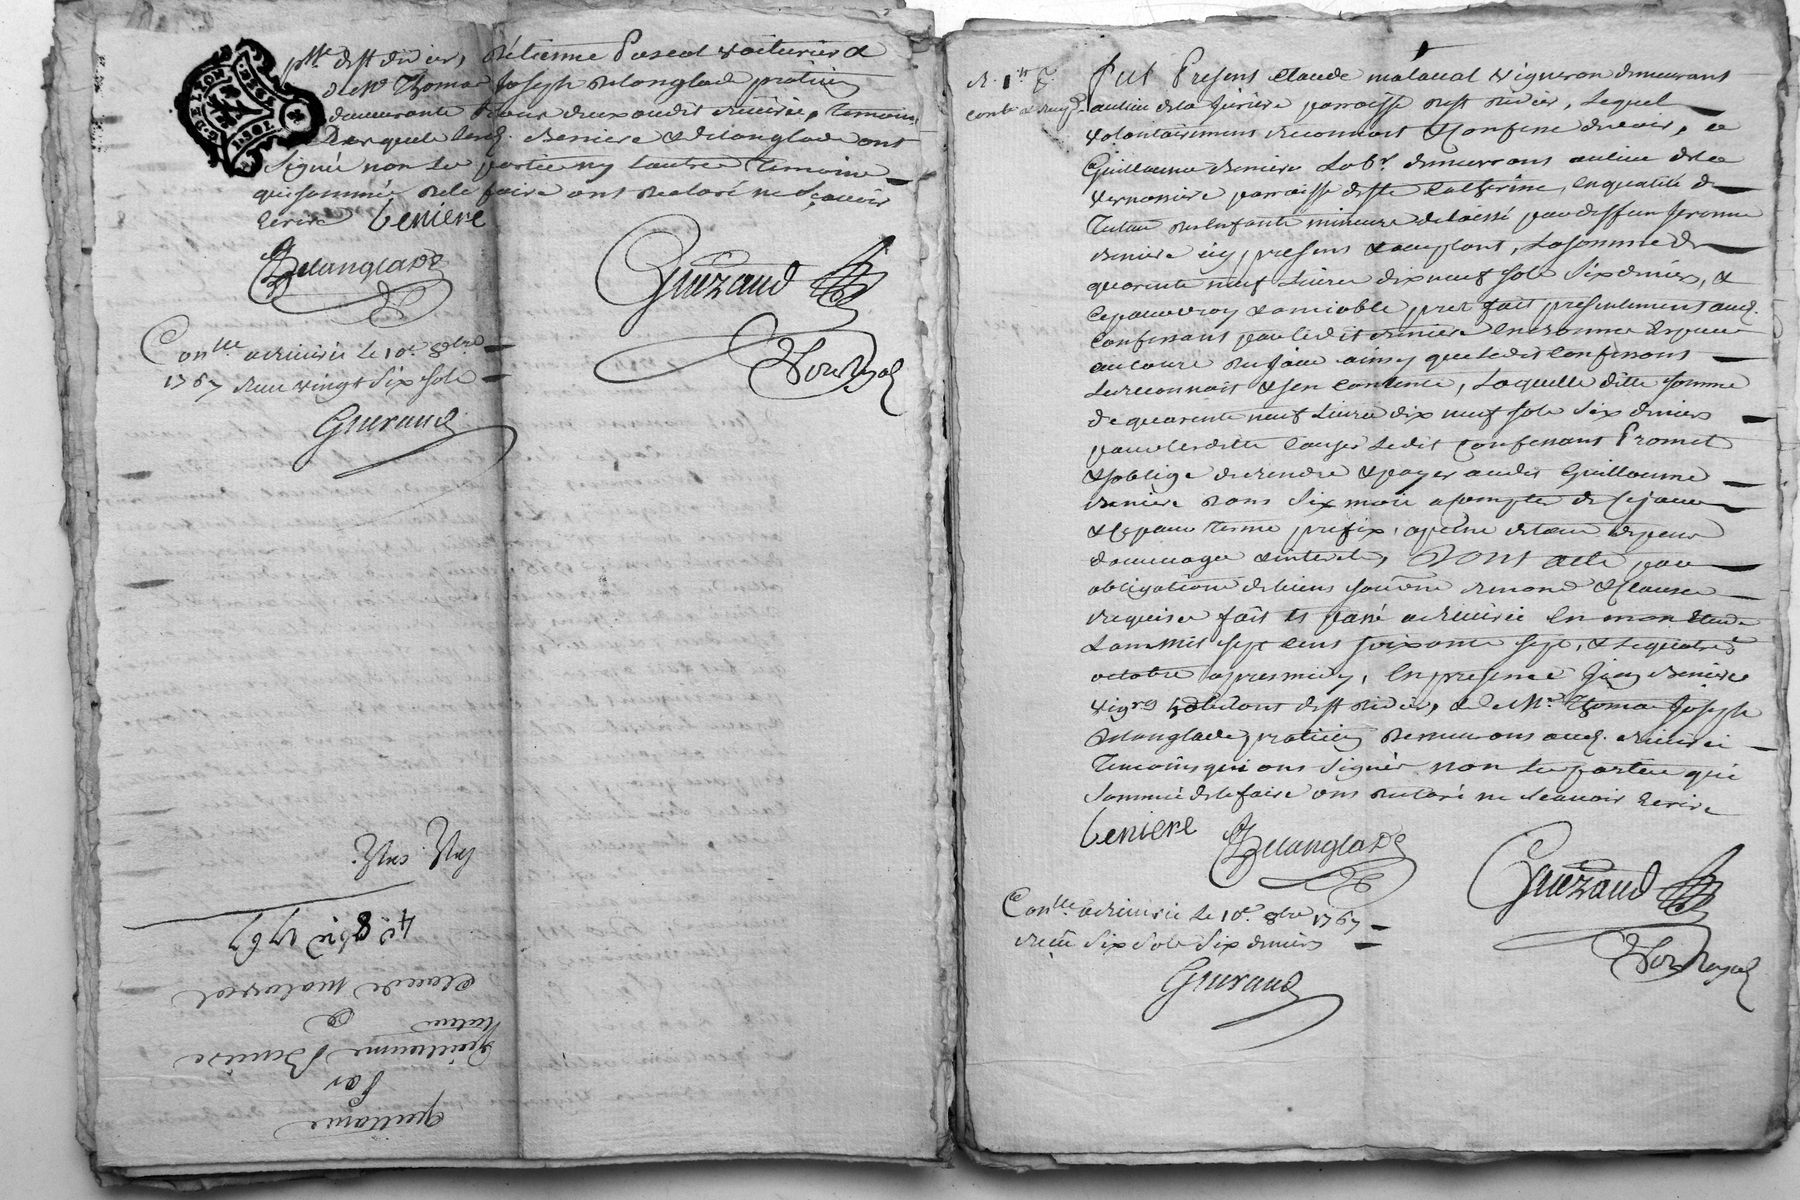 pss. de st didier, & Etienne Pascal voiturier &
de Mr. Thomas Joseph Delanglade praticien
demeurants tous deux audit temoins
lesquels Beniere & Delanglade ont
signé non les parties ny l'autre temoin
qui sommés de le faire ont declaré ne sçavoir
Ecrire beniere
Delanglade
Gueraud
Not Royal
Conllé le 10e. 8bre
1767 receu vingt six sols
Gueraud
Yves Ney
4e. 8bre 1767
Claude malaval
a
Guillaume Beniere
tuteur
Par
Quittance
Fut Present Claude malaval vigneron demeurant
au lieu de la paroisse de st didier, Lequel
volontairement reconnoit & confesse devoir, a
Guillaume Beniere Labr. demeurant au lieu de la
paroisse de ste Catherine, En qualité de
Tuteur des Enfants mineurs delaissé par deffunt Jerome
Beniere icy present & acceptant, La somme de
quarante neuf Livres dix neuf sols six deniers, &
ce pour vray & amiable pret fait presentement aud.
Confessant par ledit Beniere En bonne Especes
au cours de ce jour ainsy que ledit Confessant
Le reconnoit & s'en contente, Laquelle ditte somme
de quarante neuf Livres dix neuf sols six deniers
pour les dittes causes Ledit Confessant Promet
& s'oblige de rendre & payer audit Guillaume
Beniere dans six mois a compter de ce jour
& ce pour terme prefix, a peine de tous depens
dommages & interets, Dont acte par
obligations de biens & clauses
requises fait et passé En mon Etude
L'an mil sept cens soixante sept, & le quatre
octobre apres midy, En presence de Jean Beniere
vigron. habitant de st didier, & de Mr. Thomas Joseph
Delanglade praticien demeurans aud.
temoins qui ont signés non les parties qui
sommés de le faire ont declaré ne sçavoir Ecrire
beniere
Delanglade
Gueraud
Not Royal
Conllé le 10e. 8bre 1767
receu six sols six deniers
Gueraud